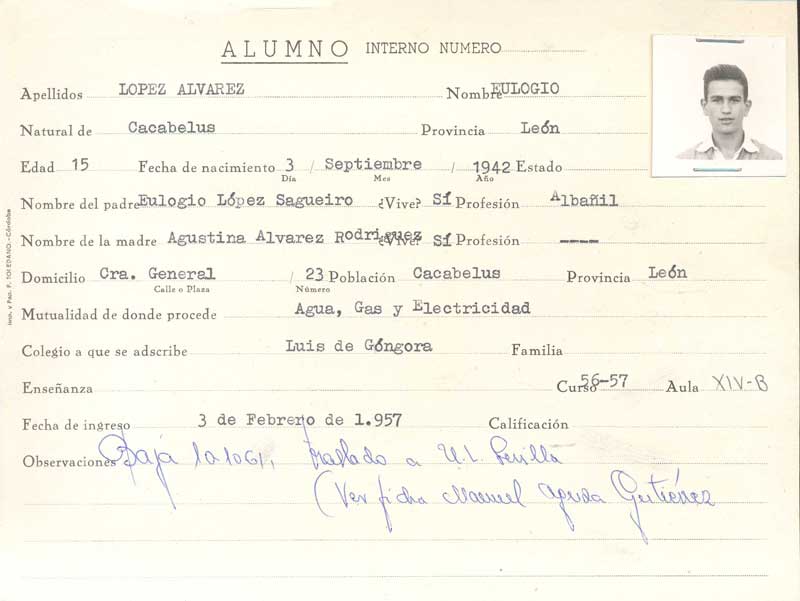 ALUMNO INTERNO NUMERO
Apellidos LOPEZ ALVAREZ Nombre EULOGIO
Natural de Cacabelus Provincia León
Edad 15 Fecha de nacimiento 3 / Septiembre / 1942 Estado
Día Mes Año
Nombre del padre Eulogio López Sagueiro ¿Vive? SÍ Profesión Albañil
Nombre de la madre Agustina Alvarez Rodriguez ¿Vive? SÍ Profesión ----
Domicilio Cra. General / 23 Población Cacabelus Provincia León
Calle o Plaza Número
Mutualidad de donde procede Agua, Gas y Electricidad
Colegio a que se adscribe Luis de Góngora Familia
Enseñanza Curso 56-57 Aula XIV-B
Fecha de ingreso 3 de Febrerto de 1.957 Calificación
Observaciones Baja 10 1061, traslado a U.L. Sevilla
(Ver ficha Manuel Gutiérrez
Imp. y Pap. F. TOLEDANO.-Córdoba